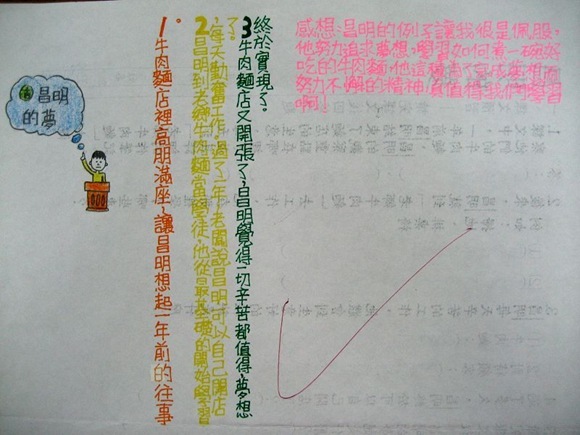 昌明
的夢
1牛肉麵店裡高朋滿座,讓昌明想起一年前的往事
。
2昌明到老鄉牛肉麵當學徒,他從最基礎的開始學習
,每天勤奮工作,過了一年,老闆說昌明可以自己開店
了。
3牛肉麵店又開張了,昌明覺得一切辛苦都值得,夢想
終於實現了。
感想:昌明的例子讓我很是佩服,
他努力追求夢想,學習如何煮一碗好
吃的牛肉麵,他這種為了完成夢想而
努力不懈的精神真值得我們學習
啊!